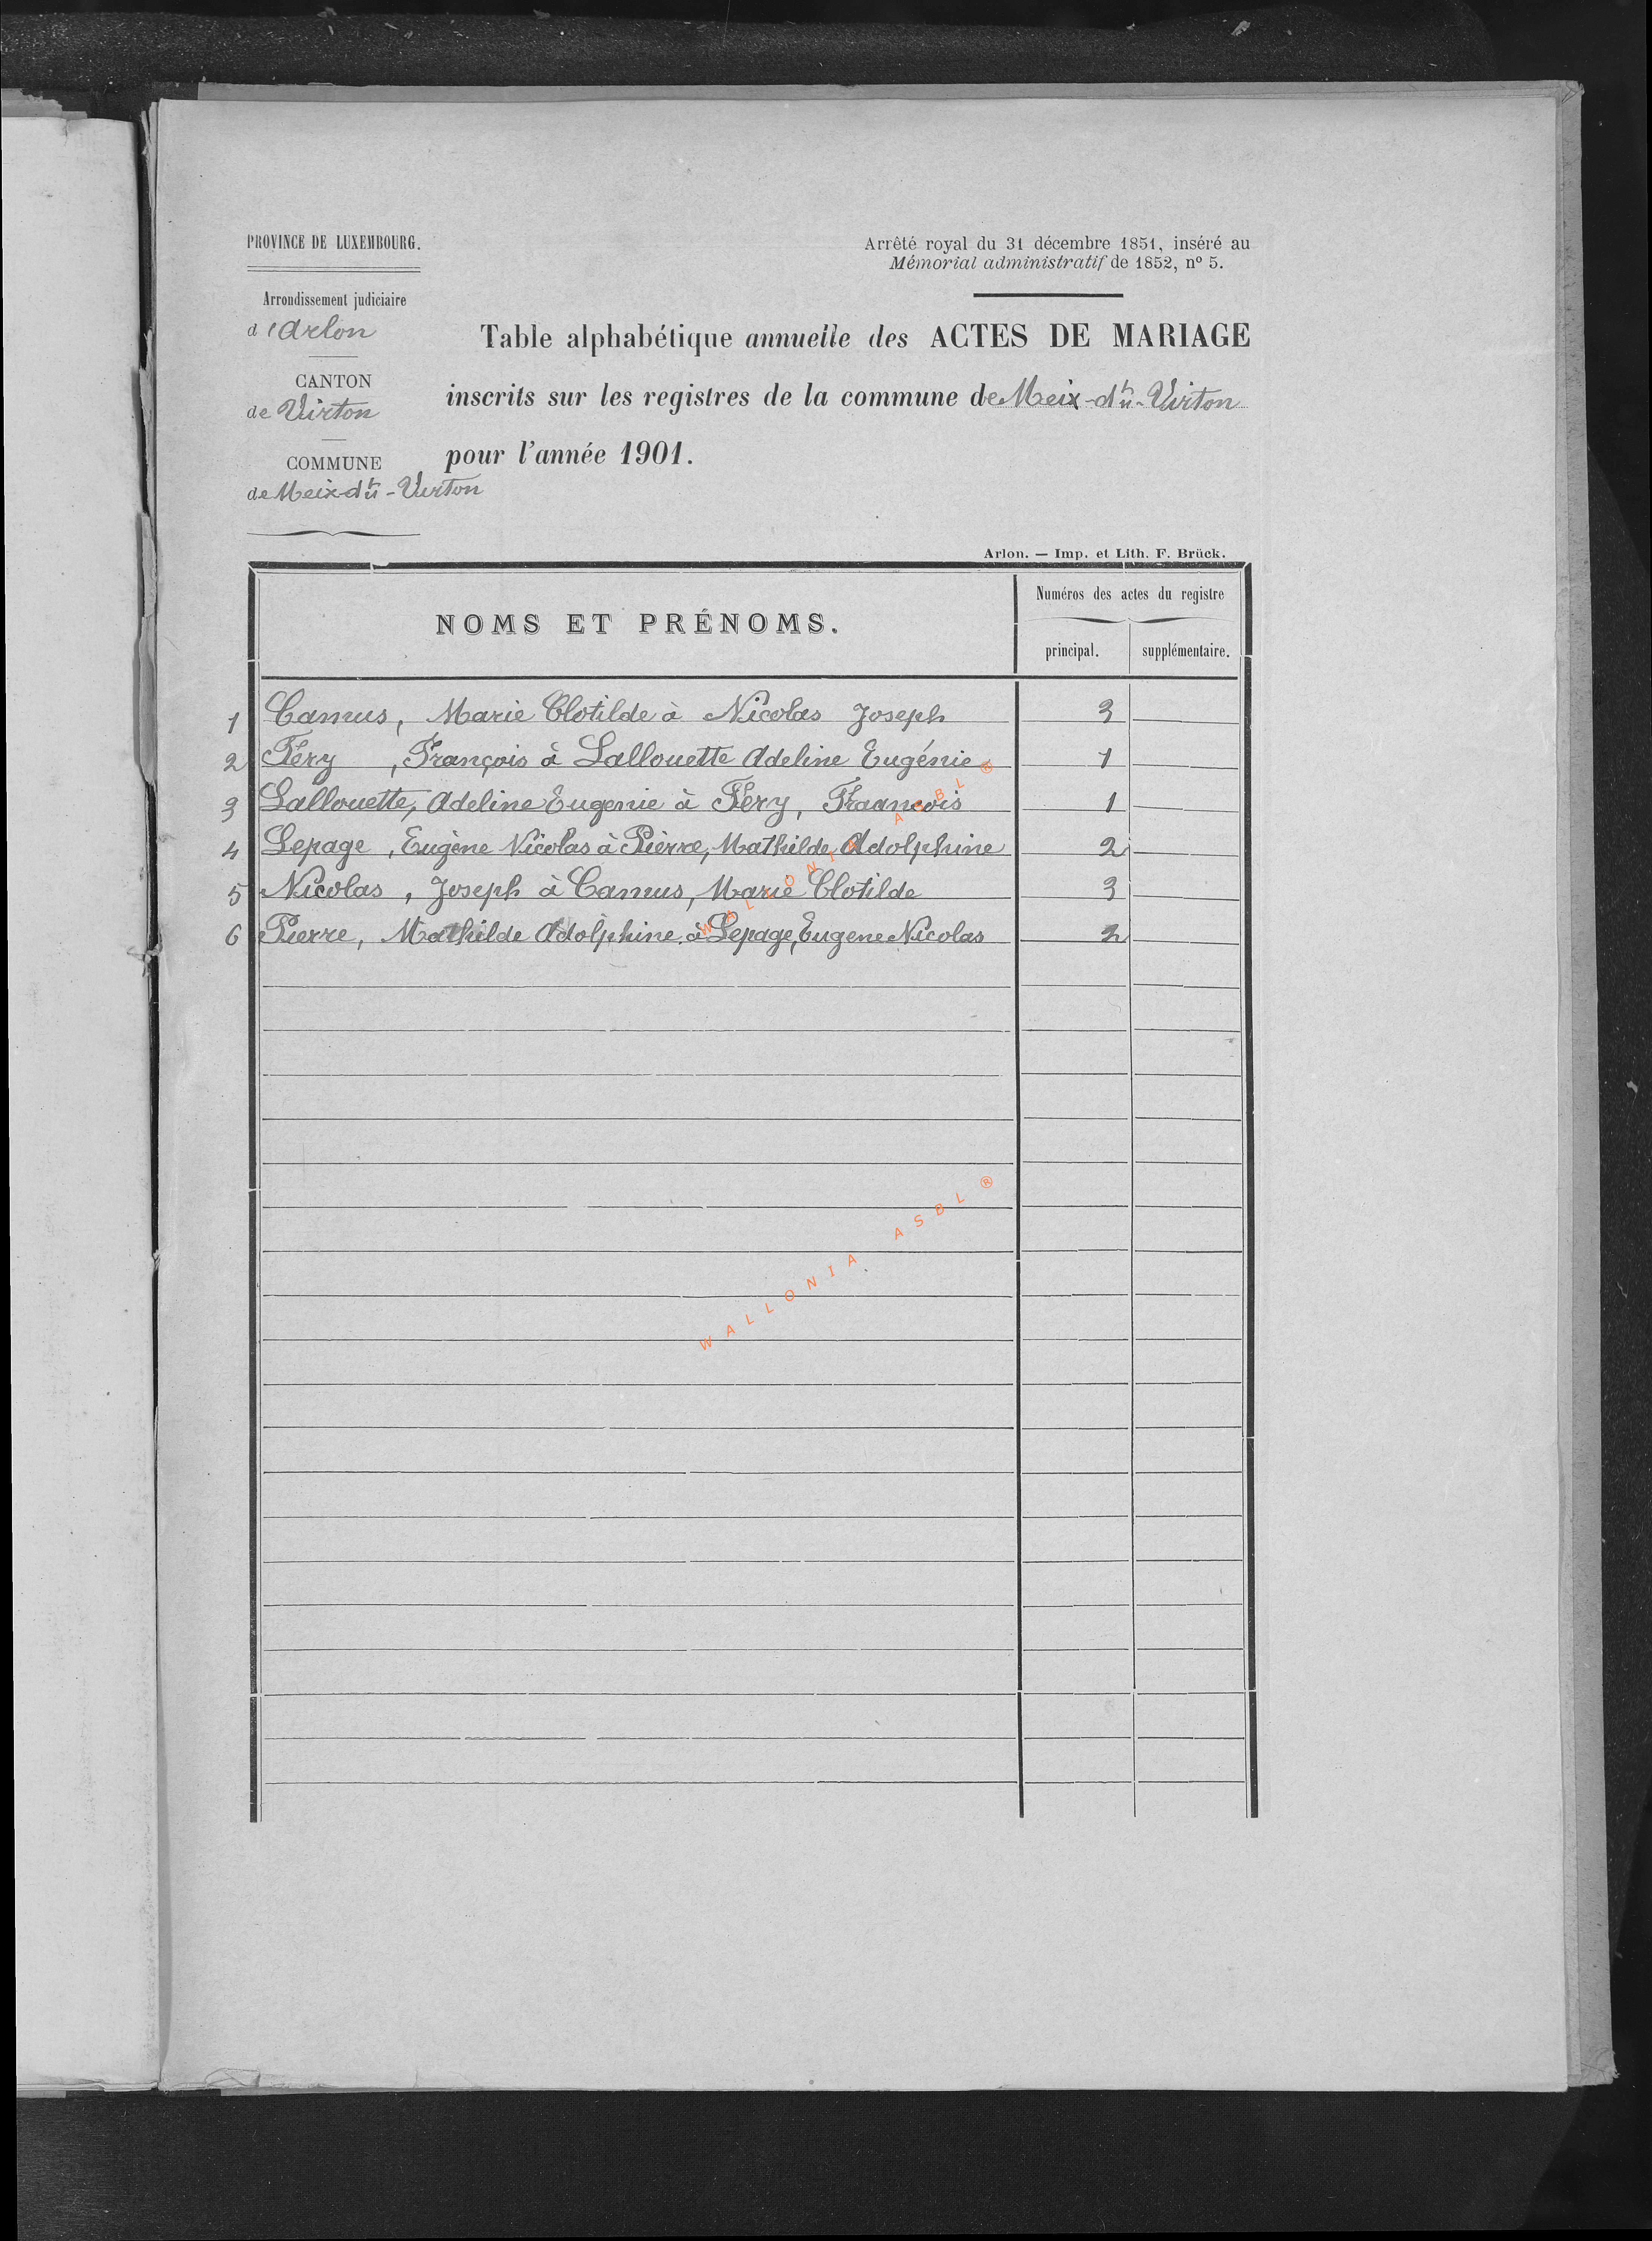 PROVINCE DE LUXEMBOURG.
Arrêté royal du 31 décembre 1851, inséré au
Mémorial administratif de 1852, nº 5.
Arrondissement judiciaire
d'Arlon
Table alphabétique annuelle des ACTES DE MARIAGE
CANTON
de Virton
inscrits sur les registres de la commune de Meix-dt-Virton
COMMUNE
pour l'année 1901.
de Meix-dt-Virton
Arlon. — Imp. et Lith. F. Brück.
NOMS ET PRÉNOMS.
Numéros des actes du registre
principal. supplémentaire.
1 Camus, Marie Clotilde à Nicolas Joseph 3
2 Féry, François à Lallouette Adeline Eugénie 1
3 Lallouette, Adeline Eugenie à Féry, Fraançois 1
4 Lepage, Eugène Nicolas à Pierre, Mathilde Adolphine 2
5 Nicolas, Joseph à Camus, Marie Clotilde 3
6 Pierre, Mathilde Adolphine à Lepage, Eugene Nicolas 2
WALLONIA ASBL ®
WALLONIA ASBL ®